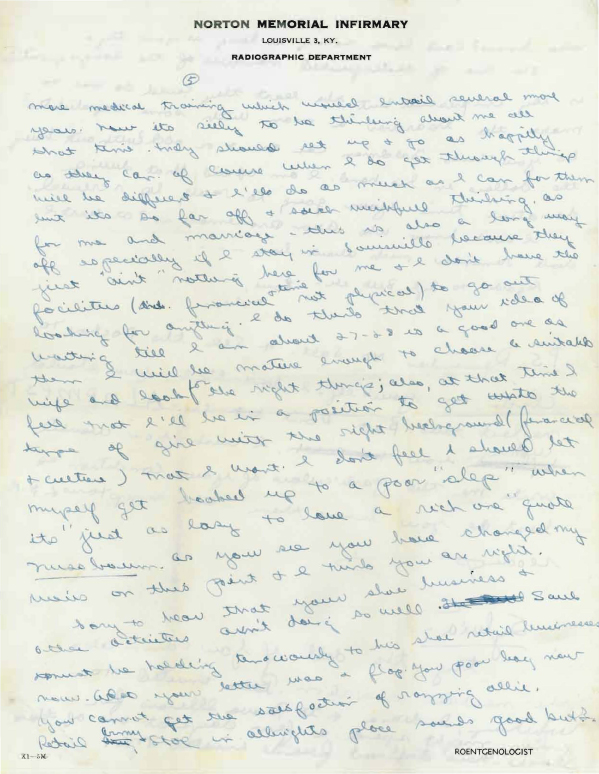 NORTON MEMORIAL INFIRMARY
LOUISVILLE 3, KY.
RADIOGRAPHIC DEPARTMENT
5
more medical training which would entail several more
years. Now its silly to be thinking about me all
that time. Indy should set up & go as happily
as they can. Of course when I do get through things
will be different & I'll do as much as I can for them
but its so far off & such wishfull thinking. As
for me and marriage - this is also a long way
off especially if I stay in Louisville because they
just ain't "nothing here for me & I don't have the
facilities (financial & time not physical) to go out
looking for anything. I do think that your idea of
waiting till I am about 27-28 is a good one as
then I will be mature enough to choose a suitable
wife and look for the right things; also, at that time I
feel that I'll be in a position to get the
type of girl with the right background (financial
& culture) that I want. I don't feel I should let
myself get hooked up to a poor "slep" when
its "just as easy to love a rich one" quote
Nussbaum. As you see you have changed my
mind on this point & I think you are right.
Sorry to hear that your shoe business &
other activities ain't doing so well. Saul
must be holding tenaciously to his shoe retail businesses
now. After your letter was a flop. You poor boy now
you cannot get the satisfaction of razzing allie.
Retail Army store in allnights place sounds good but
X1-5M
ROENTGENOLOGIST